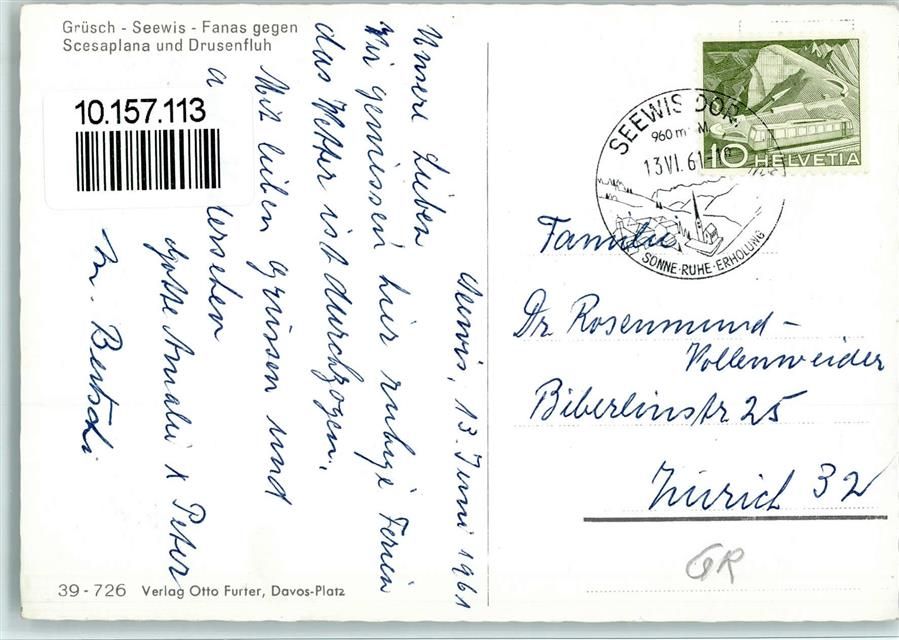 Grüsch - Seewis - Fanas gegen
Scesaplana und Drusenfluh
10.157.113
Seewis, 13. Juni 1961
Unsere Lieben
Wir geniessen hier ruhige Ferien
das Wetter ist durchzogen.
Mit lieben Grüssen und
a ersehen
Gotte Amalie & Peter
M. Bertschi
39 - 726 Verlag Otto Furter, Davos-Platz
SEEWIS DORF
960 m M.
13.VI.61-18
SONNE·RUHE·ERHOLUNG
10 HELVETIA
Familie
Dr Rosenmund-
Vollenweider
Biberlinstr 25
Zürich 32
GR